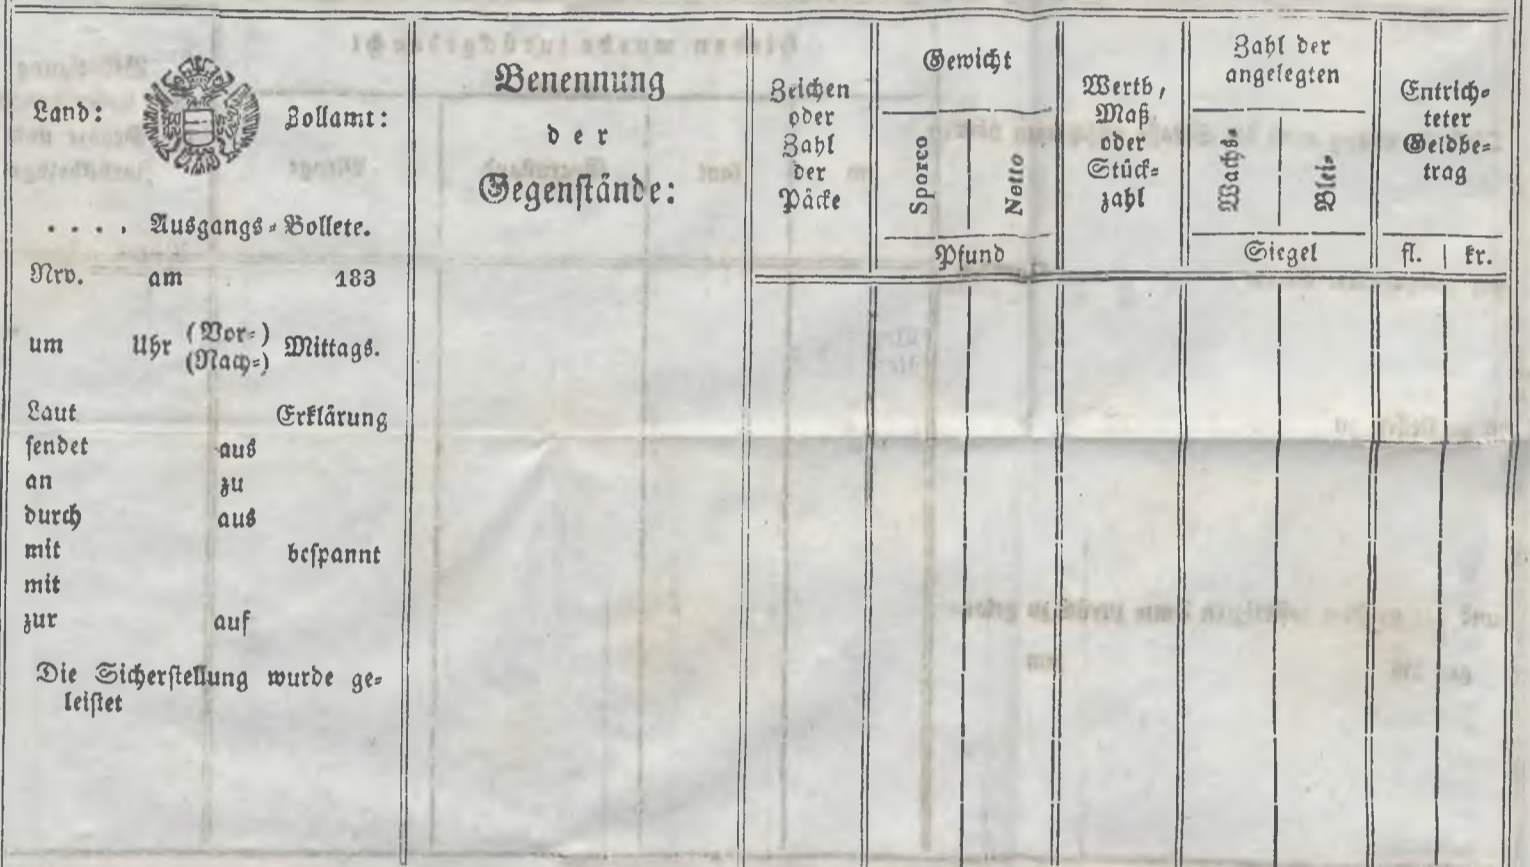 Land: Zollamt:
. . . . Ausgangs-Bollete.
Nro. am 183
um Uhr (Vor-) Mittags.
(Nach-)
Laut Erklärung
sendet aus
an zu
durch aus
mit bespannt
mit
zur auf
Die Sicherstellung wurde ge-
leistet
Benennung
der
Gegenstände:
Zeichen
oder
Zahl
der
Päcke
Gewicht
Sporco
Netto
Pfund
Werth,
Maß
oder
Stück-
zahl
Zahl der
angelegten
Wachs-
Blei-
Siegel
Entrich-
teter
Geldbe-
trag
fl. kr.